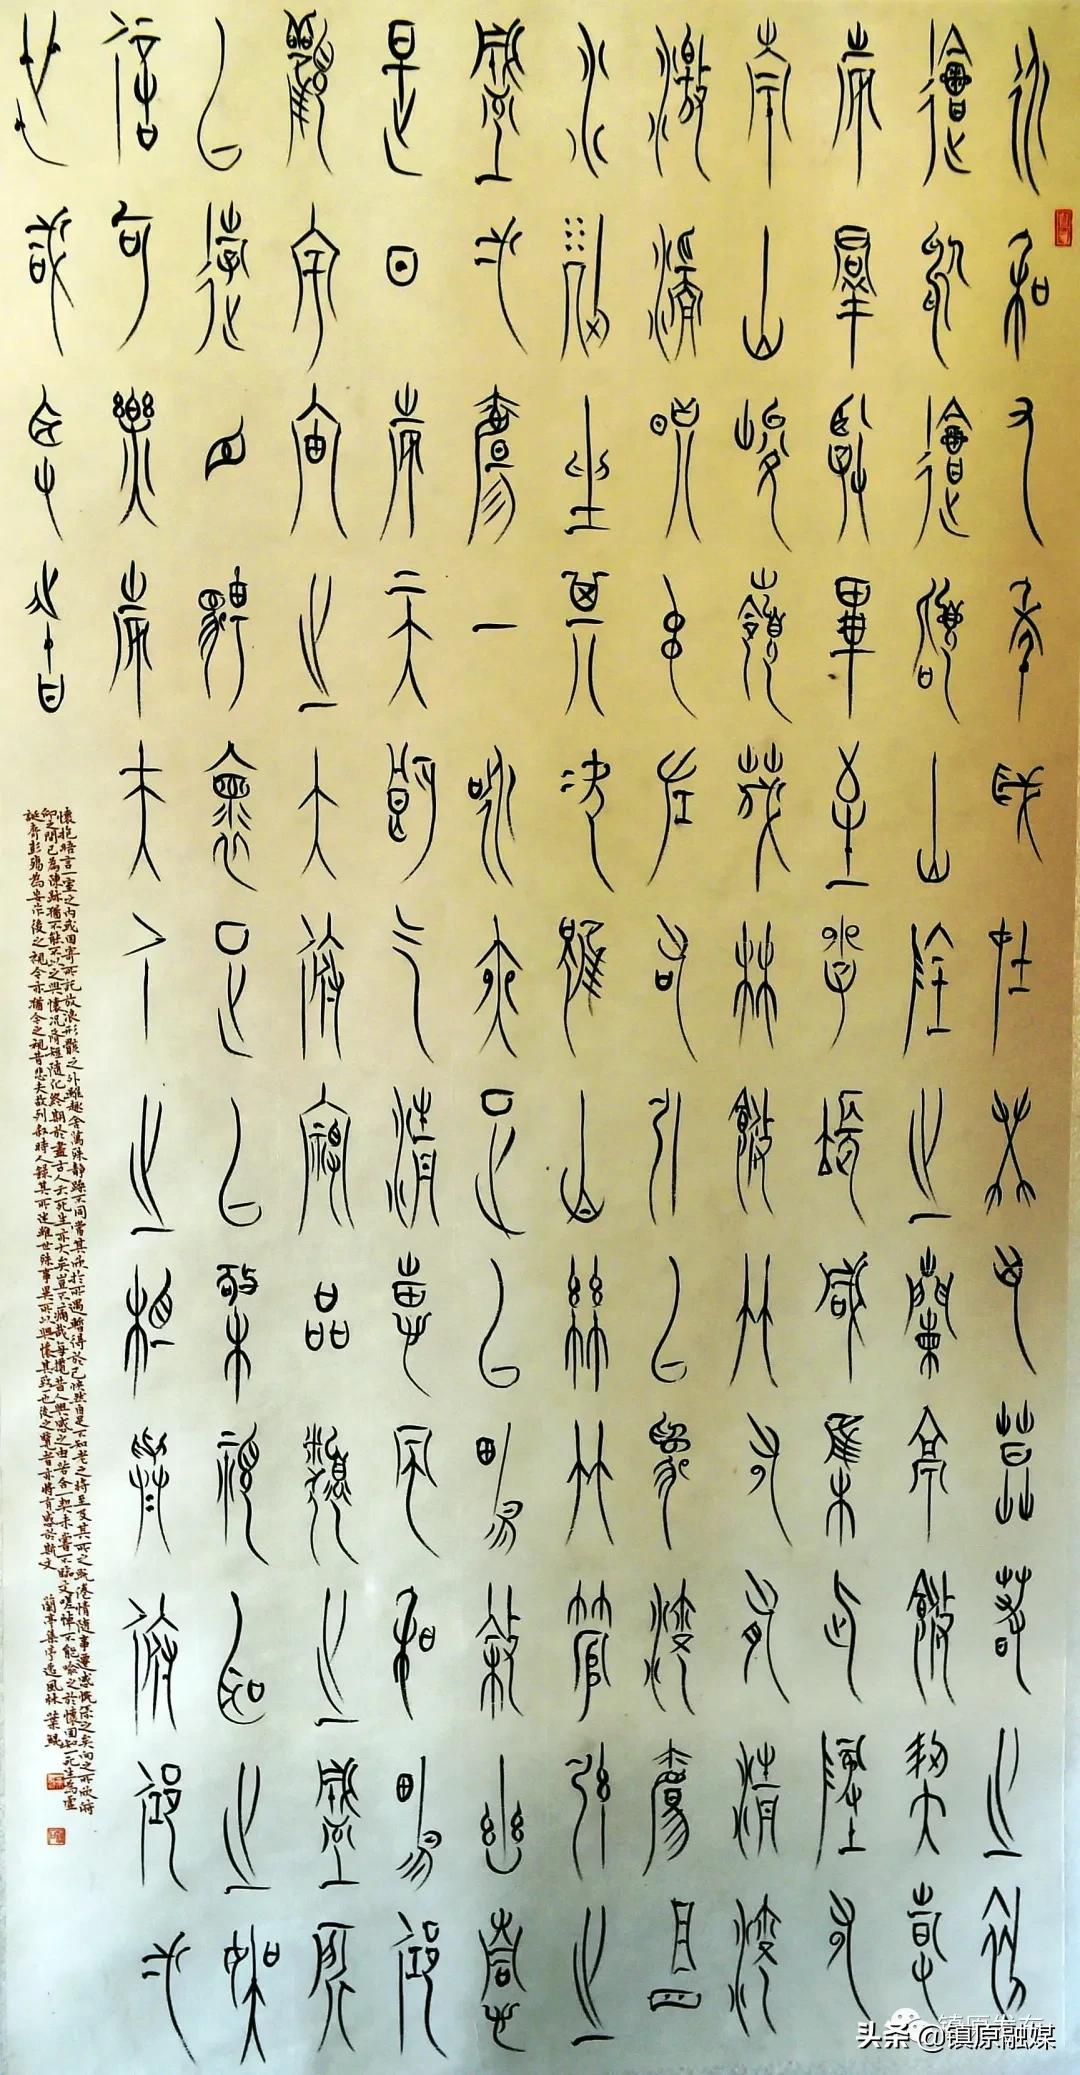 永和九年歲在癸丑暮春之初
會於會稽山陰之蘭亭脩禊事
也羣賢畢至少長咸集此地有
崇山峻嶺茂林脩竹又有清流
激湍映帶左右引以為流觴曲
水列坐其次雖無絲竹管弦之
盛一觴一詠亦足以暢敘幽情
是日也天朗氣清惠風和暢仰
觀宇宙之大俯察品類之盛所
以遊目騁懷足以極視聽之娛
信可樂也夫人之相與俯仰一
世或取諸
懷抱悟言一室之內或因寄所託放浪形骸之外雖趣舍萬殊靜躁不同當其欣於所遇暫得於己怏然自足不知老之將至及其所之既倦情隨事遷感慨係之矣向之所欣俯
仰之間已為陳跡猶不能不以之興懷況脩短隨化終期於盡古人云死生亦大矣豈不痛哉每攬昔人興感之由若合一契未嘗不臨文嗟悼不能喻之於懷固知一死生為虛
誕齊彭殤為妄作後之視今亦猶今之視昔悲夫故列敘時人錄其所述雖世殊事異所以興懷其致一也後之覽者亦將有感於斯文 蘭亭集序
镇原发布
头条 @镇原融媒